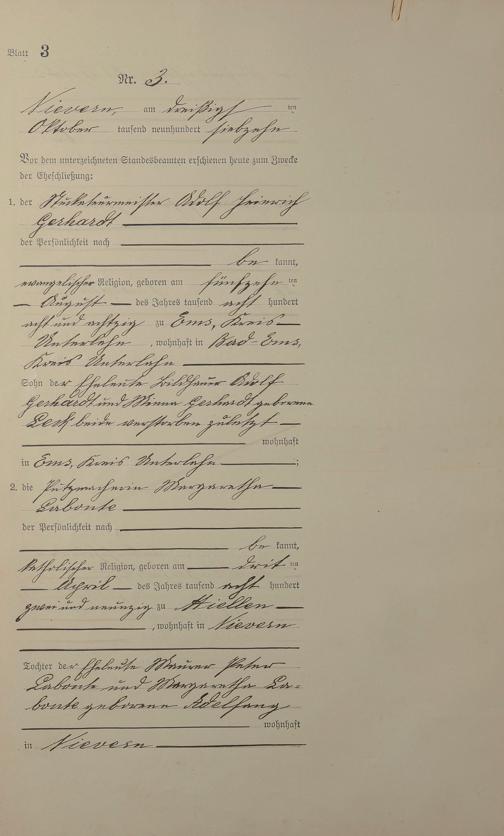 Blatt 3
Nr. 3.
Nievern, am dreißigs ten
Oktober tausend neunhundert siebzehn
Vor dem unterzeichneten Standesbeamten erschienen heute zum Zwecke
der Eheschließung:
1. der Stuckateurmeister Adolf Heinrich
Gerhardt
der Persönlichkeit nach
be kannt,
evangelischer Religion, geboren am fünfzehn ten
August des Jahres tausend acht hundert
acht und achtzig zu Ems, Kreis
Unterlahn, wohnhaft in Bad-Ems,
Kreis Unterlahn
Sohn der Eheleute Bildhauer Adolf
Gerhardt und Minna Gerhardt geborene
beide verstorben zuletzt
wohnhaft
in Ems, Kreis Unterlahn;
2. die Putzmacherin Margaretha
Labonte
der Persönlichkeit nach
be kannt,
katholischer Religion, geboren am drit ten
April des Jahres tausend acht hundert
zwei und neunzig zu
, wohnhaft in Nievern
Tochter der Eheleute Maurer Peter
Labonte und Margaretha La=
bonte geborene Adelfang
wohnhaft
in Nievern